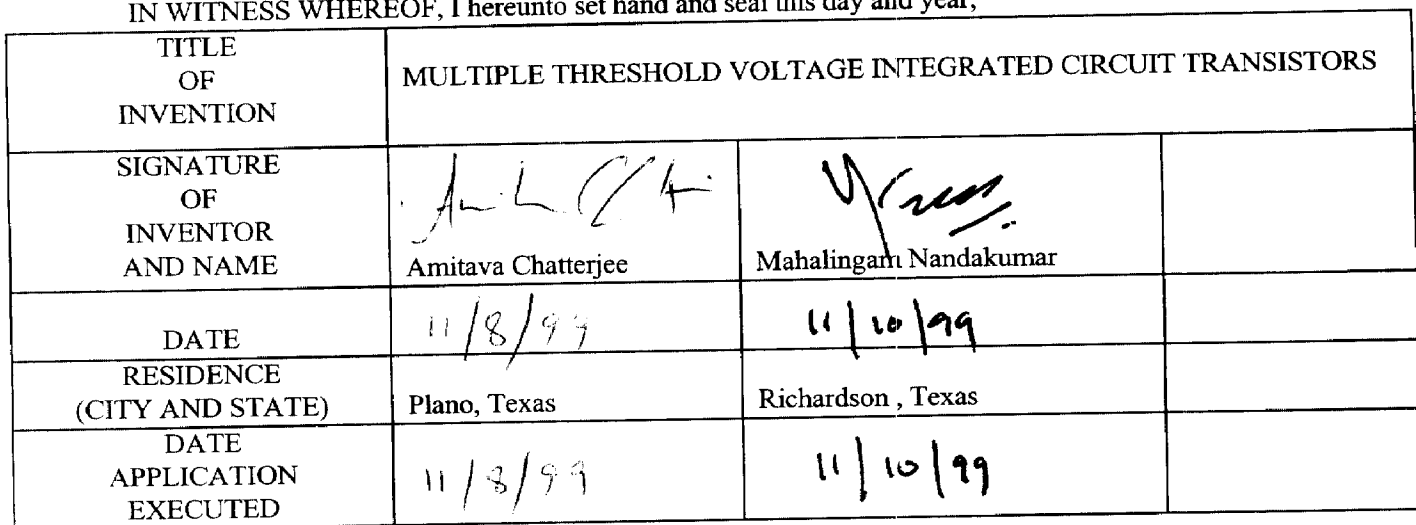 IN WITNESS WHEREOF, I hereunto set hand and seal this day and year;
TITLE
OF
INVENTION
MULTIPLE THRESHOLD VOLTAGE INTEGRATED CIRCUIT TRANSISTORS
SIGNATURE
OF
INVENTOR
AND NAME
Amitava Chatterjee
Mahalingam Nandakumar
DATE
11/8/99
11/10/99
RESIDENCE
(CITY AND STATE)
Plano, Texas
Richardson , Texas
DATE
APPLICATION
EXECUTED
11/8/99
11/10/99